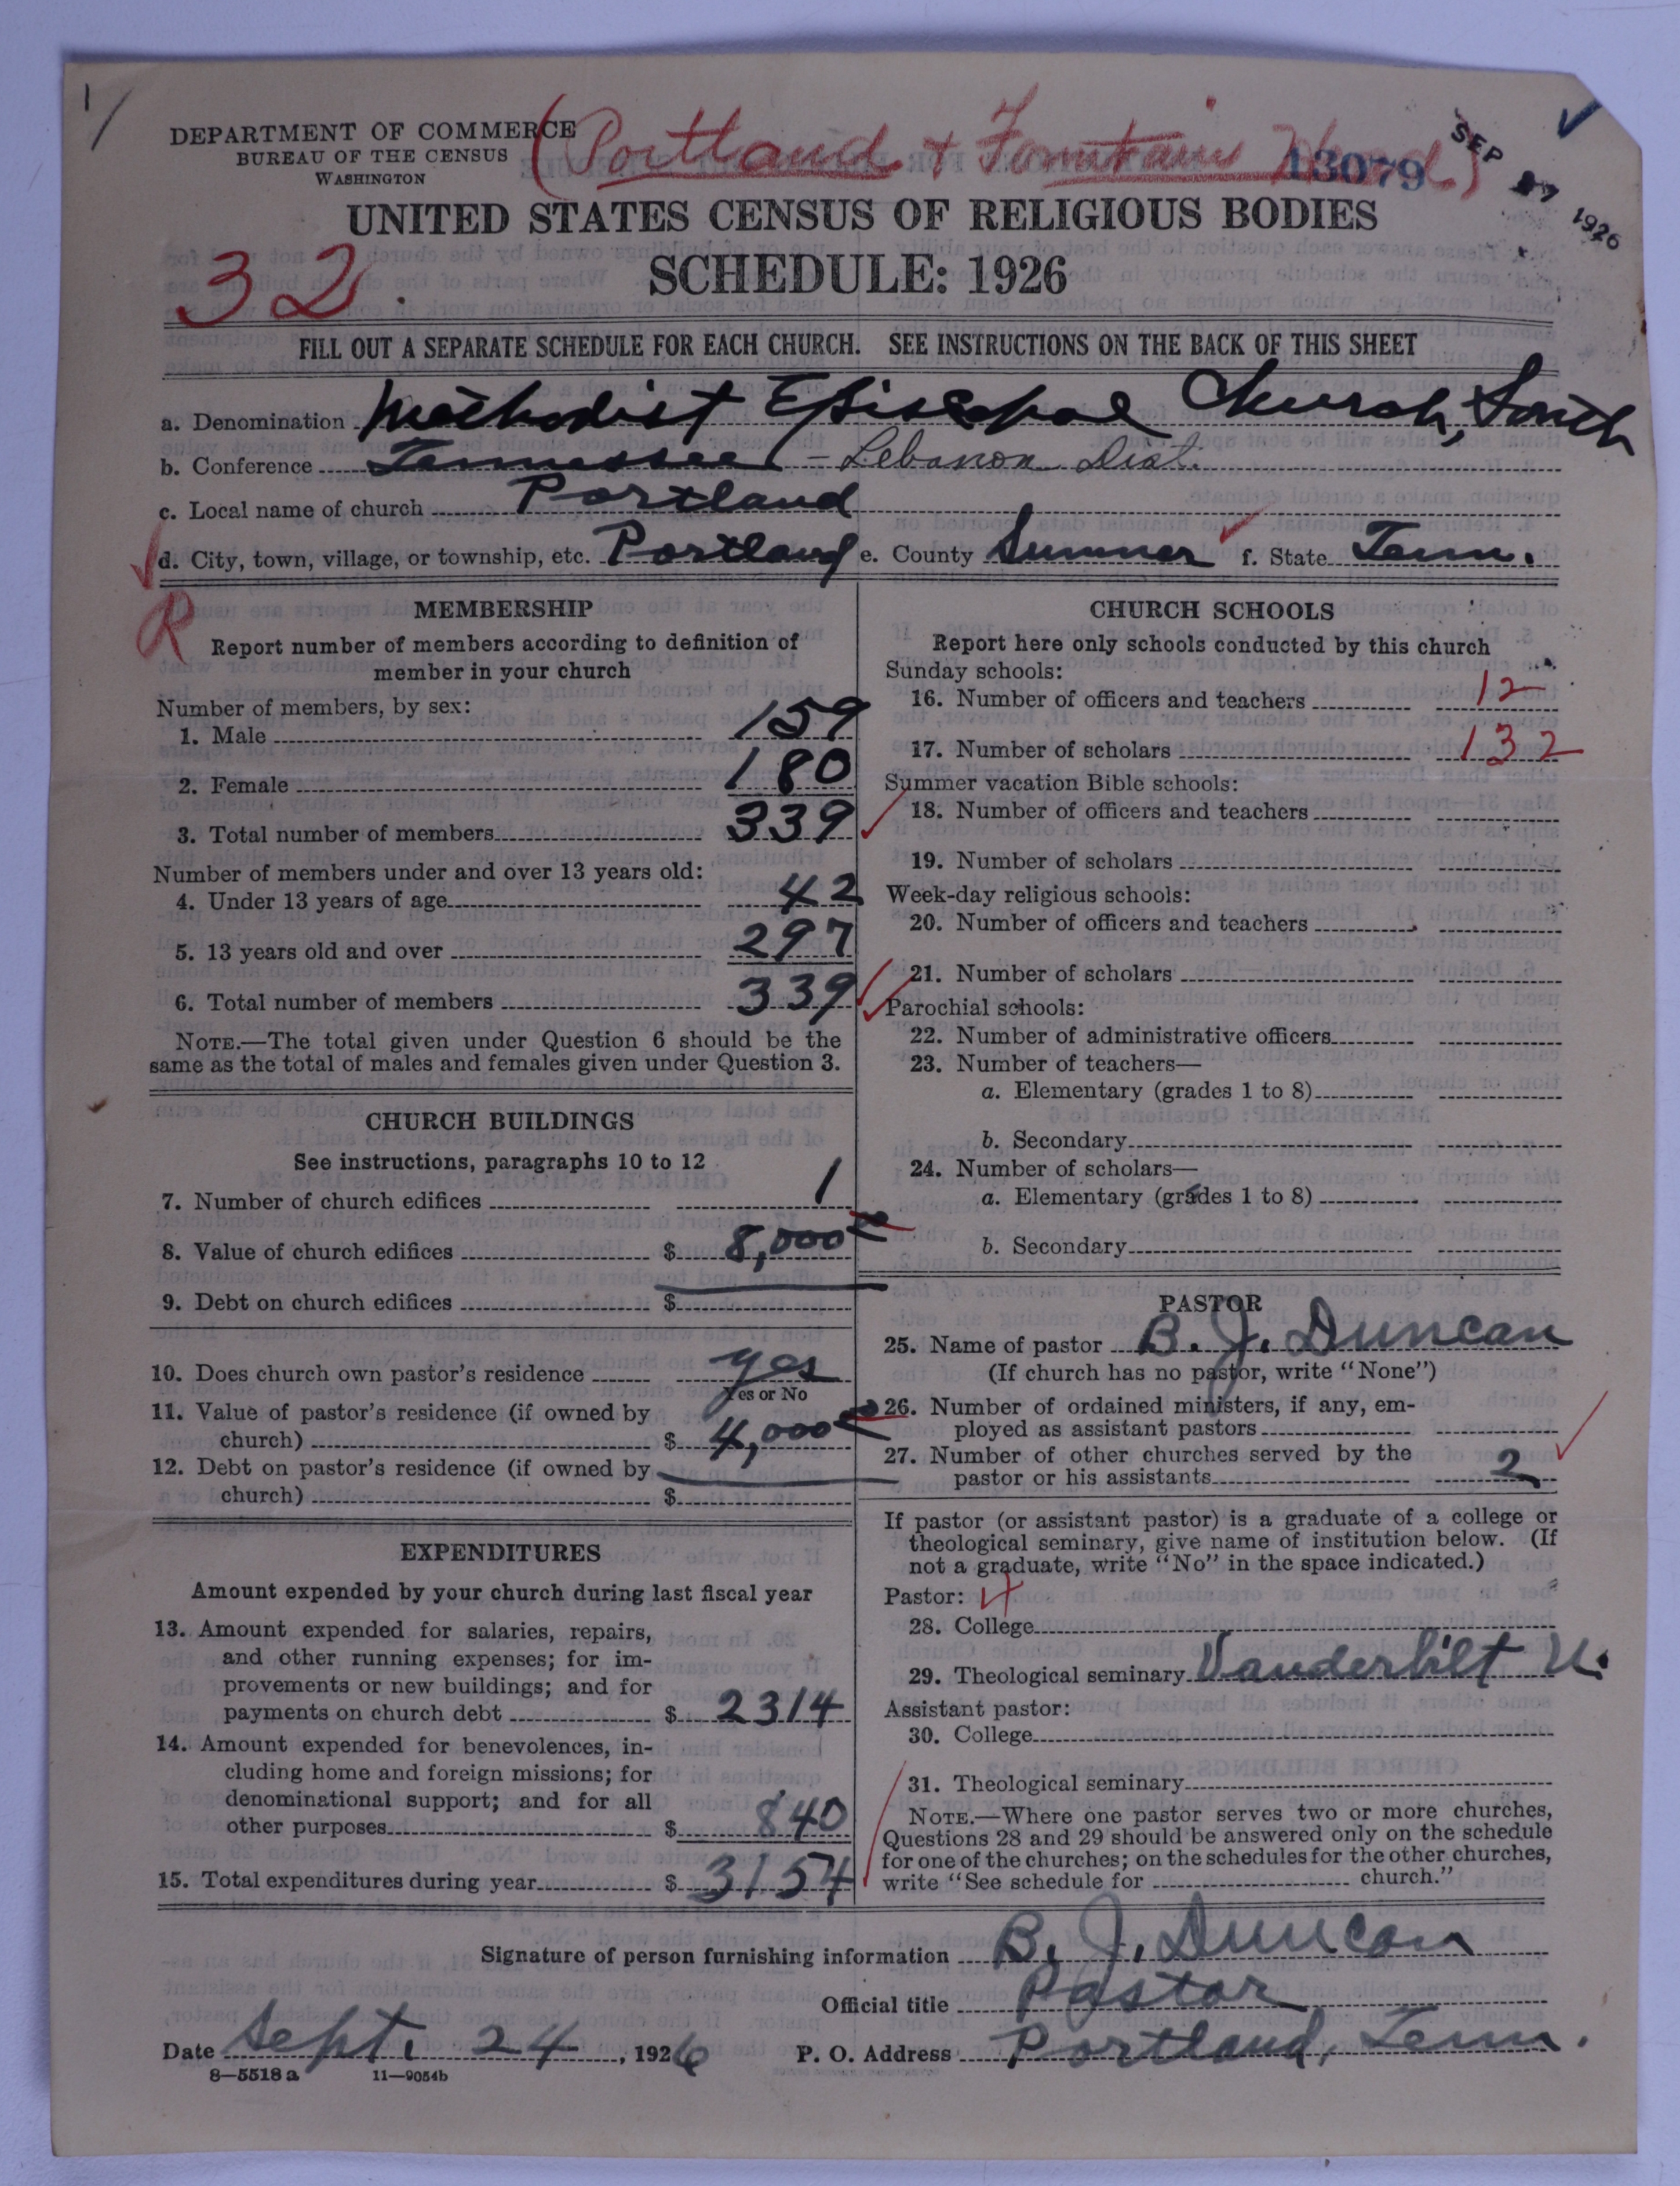 1/
DEPARTMENT OF COMMERCE
BUREAU OF THE CENSUS
WASHINGTON
(Portland & Fountain Head)
13079
SEP 27 1926
UNITED STATES CENSUS OF RELIGIOUS BODIES
32.
SCHEDULE: 1926
FILL OUT A SEPARATE SCHEDULE FOR EACH CHURCH. SEE INSTRUCTIONS ON THE BACK OF THIS SHEET
a. Denomination Methodist Episcopal Church, South
b. Conference Tennessee - Lebanon Dist.
c. Local name of church Portland
d. City, town, village, or township, etc. Portland e. County Sumner f. State Tenn.
R
MEMBERSHIP
Report number of members according to definition of
member in your church
Number of members, by sex:
1. Male 159
2. Female 180
3. Total number of members 339
Number of members under and over 13 years old:
4. Under 13 years of age 42
5. 13 years old and over 297
6. Total number of members 339
NOTE.—The total given under Question 6 should be the
same as the total of males and females given under Question 3.
CHURCH BUILDINGS
See instructions, paragraphs 10 to 12
7. Number of church edifices 1
8. Value of church edifices $ 8,000 00
9. Debt on church edifices $
10. Does church own pastor's residence yes
Yes or No
11. Value of pastor's residence (if owned by
church) $ 4,000 00
12. Debt on pastor's residence (if owned by
church) $
EXPENDITURES
Amount expended by your church during last fiscal year
13. Amount expended for salaries, repairs,
and other running expenses; for im-
provements or new buildings; and for
payments on church debt $ 2314
14. Amount expended for benevolences, in-
cluding home and foreign missions; for
denominational support; and for all
other purposes $ 840
15. Total expenditures during year $ 3154
CHURCH SCHOOLS
Report here only schools conducted by this church
Sunday schools:
16. Number of officers and teachers 12
17. Number of scholars 132
Summer vacation Bible schools:
18. Number of officers and teachers
19. Number of scholars
Week-day religious schools:
20. Number of officers and teachers
21. Number of scholars
Parochial schools:
22. Number of administrative officers
23. Number of teachers—
a. Elementary (grades 1 to 8)
b. Secondary
24. Number of scholars—
a. Elementary (grades 1 to 8)
b. Secondary
PASTOR
25. Name of pastor B. J. Duncan
(If church has no pastor, write "None")
26. Number of ordained ministers, if any, em-
ployed as assistant pastors
27. Number of other churches served by the
pastor or his assistants 2
If pastor (or assistant pastor) is a graduate of a college or
theological seminary, give name of institution below. (If
not a graduate, write "No" in the space indicated.)
Pastor: 4
28. College
29. Theological seminary Vanderbilt U.
Assistant pastor:
30. College
31. Theological seminary
NOTE.—Where one pastor serves two or more churches,
Questions 28 and 29 should be answered only on the schedule
for one of the churches; on the schedules for the other churches,
write "See schedule for church."
Signature of person furnishing information B. J. Duncan
Official title Pastor
Date Sept. 24, 1926 P. O. Address Portland, Tenn.
8—5518a 11—9054b